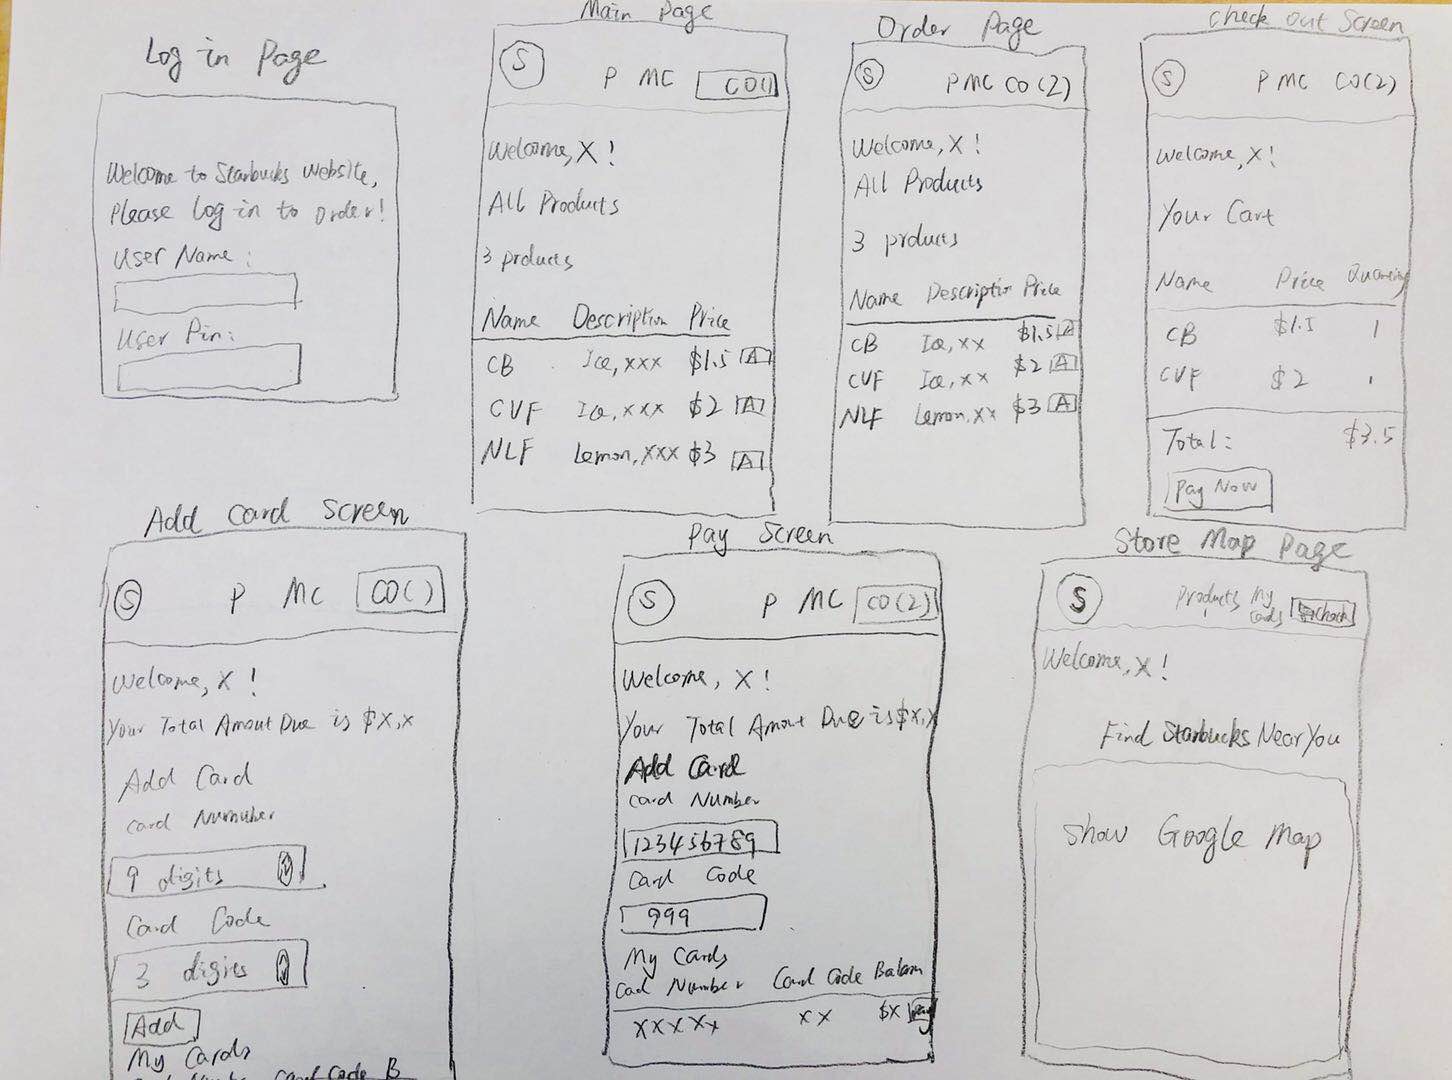 Log in Page
Welcome to Starbucks Website,
Please Log in to order!
User Name:
User Pin:
Main Page
S P MC CO()
Welcome, X!
All Products
3 prducts
Name Description Price
CB Ice, xxx $1.5 A
CVF Ice, xxx $2 A
NLF Lemon, xxx $3 A
Order Page
S P MC CO(2)
Welcome, X!
All Products
3 prducts
Name Descriptin Price
CB Ice, xx $1.5 A
CVF Ice, xx $2 A
NLF Lemon, xx $3 A
Check out Screen
S P MC CO(2)
Welcome, X!
Your Cart
Name Price
CB $1.5 1
CVF $2 1
Total: $3.5
Pay Now
Add Card Screen
S P MC CO()
Welcome, X!
Your Total Amout Due is $X.X
Add Card
Card Number
9 digits
Card Code
3 digits
Add
My Cards
Card Code B
Pay Screen
S P MC CO(2)
Welcome, X!
Your Total Amout Due is $X.X
Add Card
Card Number
123456789
Card Code
999
My Cards
Cad Number Card Code
XXXXX XX $X
Store Map Page
S Products My
Cards
Welcome, X!
Find Starbucks Near You
Show Google Map